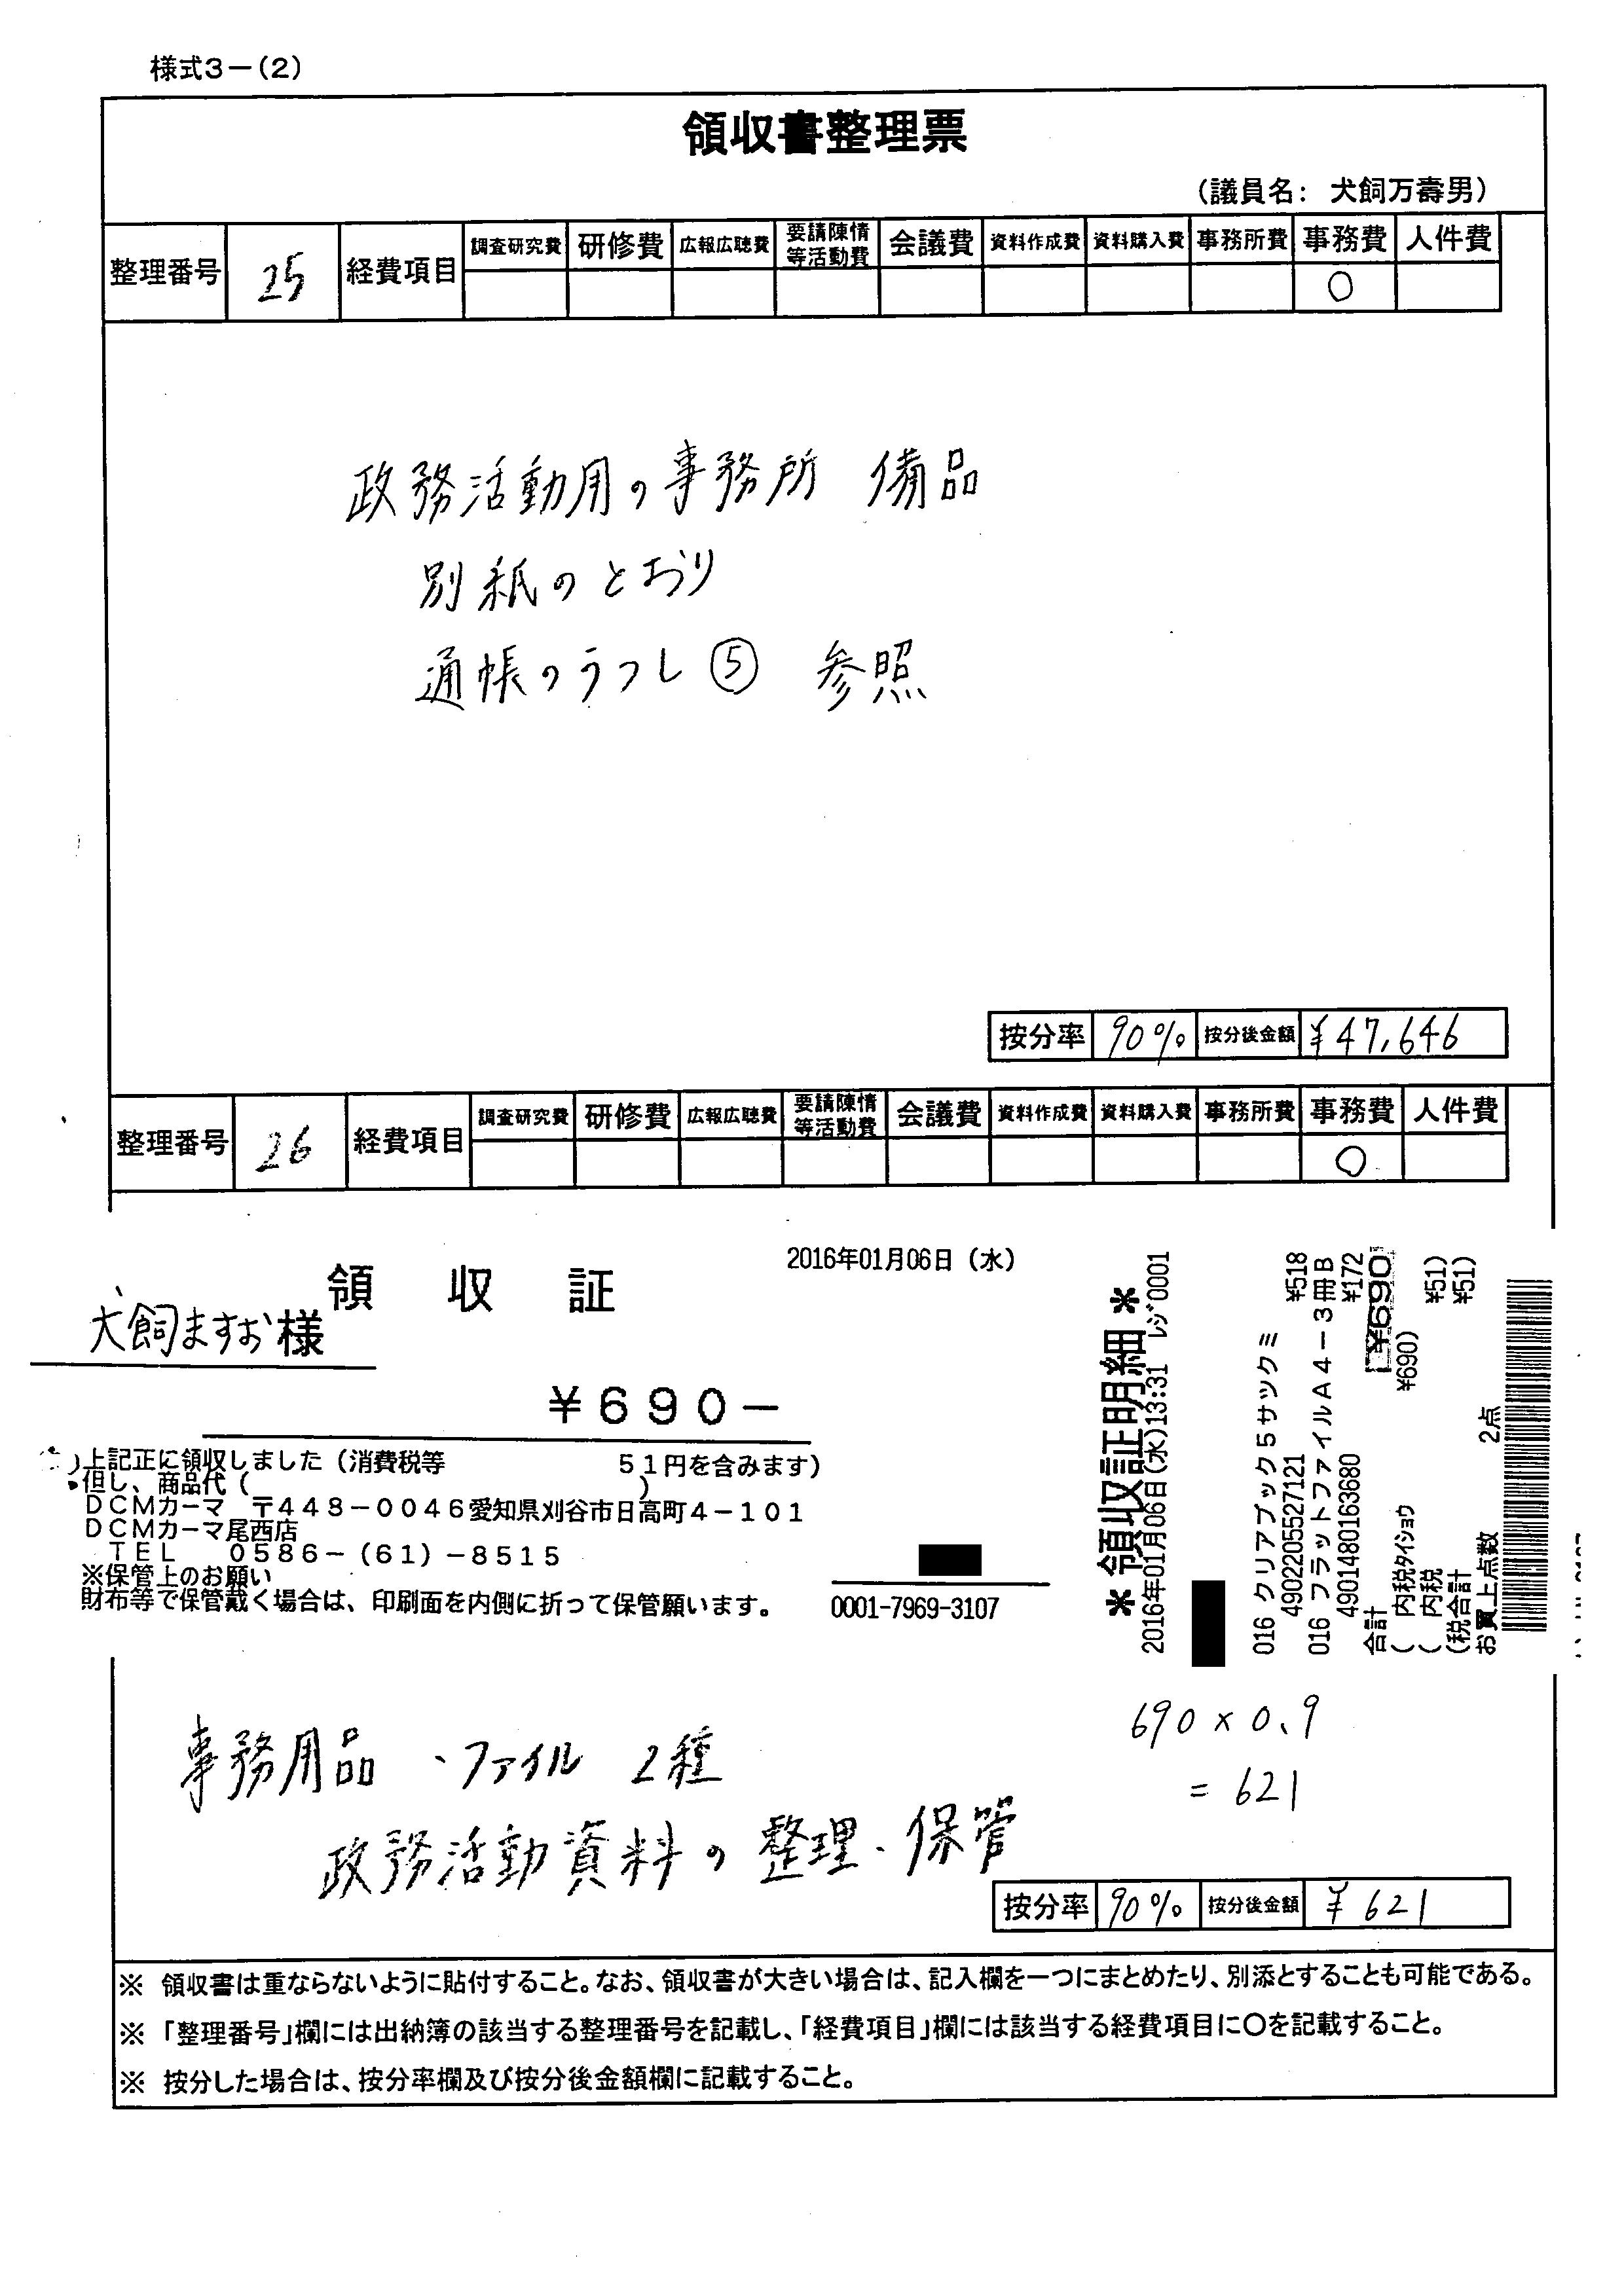 様式3－(2)
領収書整理票
(議員名： 犬飼万壽男)
整理番号 25 経費項目 調査研究費 研修費 広報広聴費 要請陳情等活動費 会議費 資料作成費 資料購入費 事務所費 事務費 人件費
○
政務活動用の事務所 備品
別紙のとおり
通帳のうつし⑤ 参照
按分率 90% 按分後金額 ¥47,646
整理番号 26 経費項目 調査研究費 研修費 広報広聴費 要請陳情等活動費 会議費 資料作成費 資料購入費 事務所費 事務費 人件費
○
2016年01月06日 (水)
領 収 証
犬飼ますお様
¥690－
上記正に領収しました (消費税等 51円を含みます)
但し、商品代 ( )
DCMカーマ 〒448－0046愛知県刈谷市日高町4－101
DCMカーマ尾西店
TEL 0586－(61)－8515
※保管上のお願い
財布等で保管戴く場合は、印刷面を内側に折って保管願います。
0001-7969-3107
＊領収証明細＊
2016年01月06日(水)13:31 レジ0001
016 クリアブック5サツクミ ¥518
4902205527121
016 フラットファイルA4－3冊B
4901480163680 ¥172
合計 ¥690
( 内税タイショウ ¥690)
( 内税 ¥51)
(税合計 ¥51)
お買上点数 2点
690×0.9
=621
事務用品 、ファイル 2種
政務活動資料の整理・保管
按分率 90% 按分後金額 ¥621
※ 領収書は重ならないように貼付すること。なお、領収書が大きい場合は、記入欄を一つにまとめたり、別添とすることも可能である。
※ 「整理番号」欄には出納簿の該当する整理番号を記載し、「経費項目」欄には該当する経費項目に○を記載すること。
※ 按分した場合は、按分率欄及び按分後金額欄に記載すること。